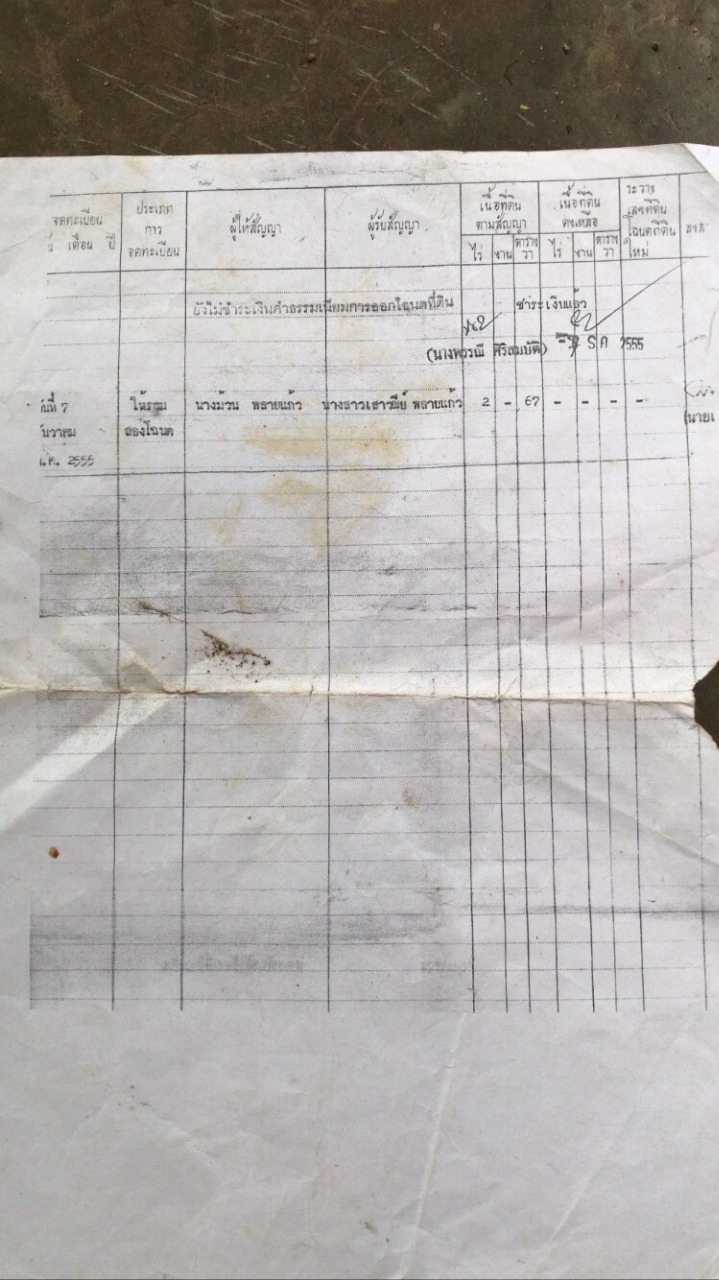 จดทะเบียน ประเภท ผู้ให้สัญญา ผู้รับสัญญา เนื้อที่ดิน เนื้อที่ดิน ระวาง
เดือน ปี การ ตามสัญญา คงเหลือ เลขที่ดิน
จดทะเบียน ไร่ งาน ตาราง ไร่ งาน ตาราง โฉนดที่ดิน
วา วา ใหม่
ยังไม่ชำระเงินค่าธรรมเนียมการออกโฉนดที่ดิน ชำระเงินแล้ว
(นางพวรณี ศิริสมบัติ) 2555
นที่ 7 ให้รวม นางม้วน พลายแก้ว นางสาวเสาวณีย์ พลายแก้ว 2 - 67 - - - -
นวาคม สองโฉนด (นายเ
.ศ. 2555